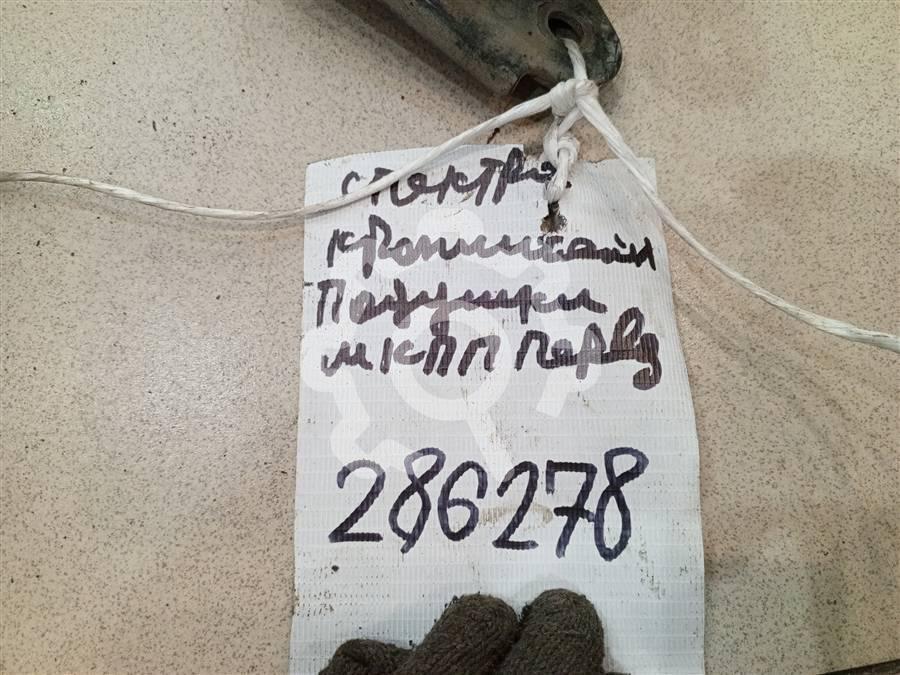 спектра
кронштейн
Подушки
мкпп перед
286278